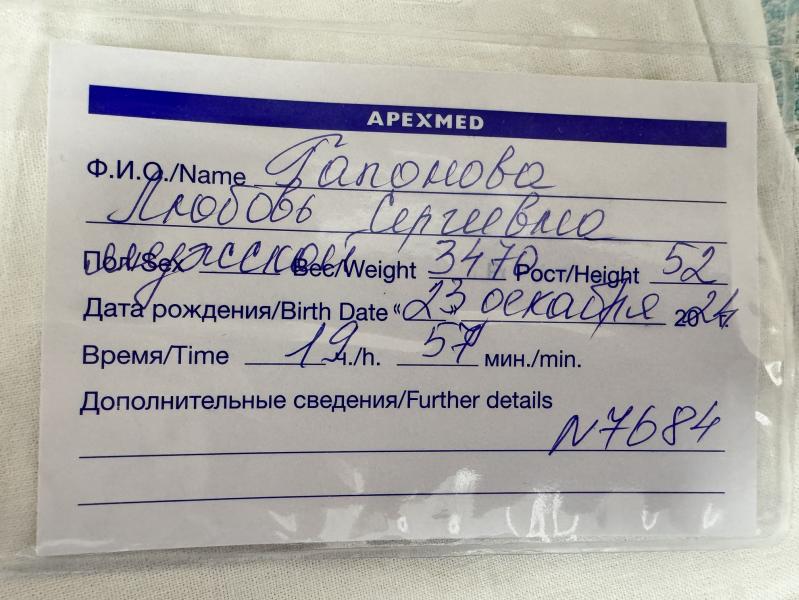 APEXMED
Ф.И.О./Name Гапонова
Любовь Сергиевна
Пол/Sex женский Вес/Weight 3470 Рост/Height 52
Дата рождения/Birth Date “23” декабря 2024 г.
Время/Time 19 ч./h. 57 мин./min.
Дополнительные сведения/Further details
N7684